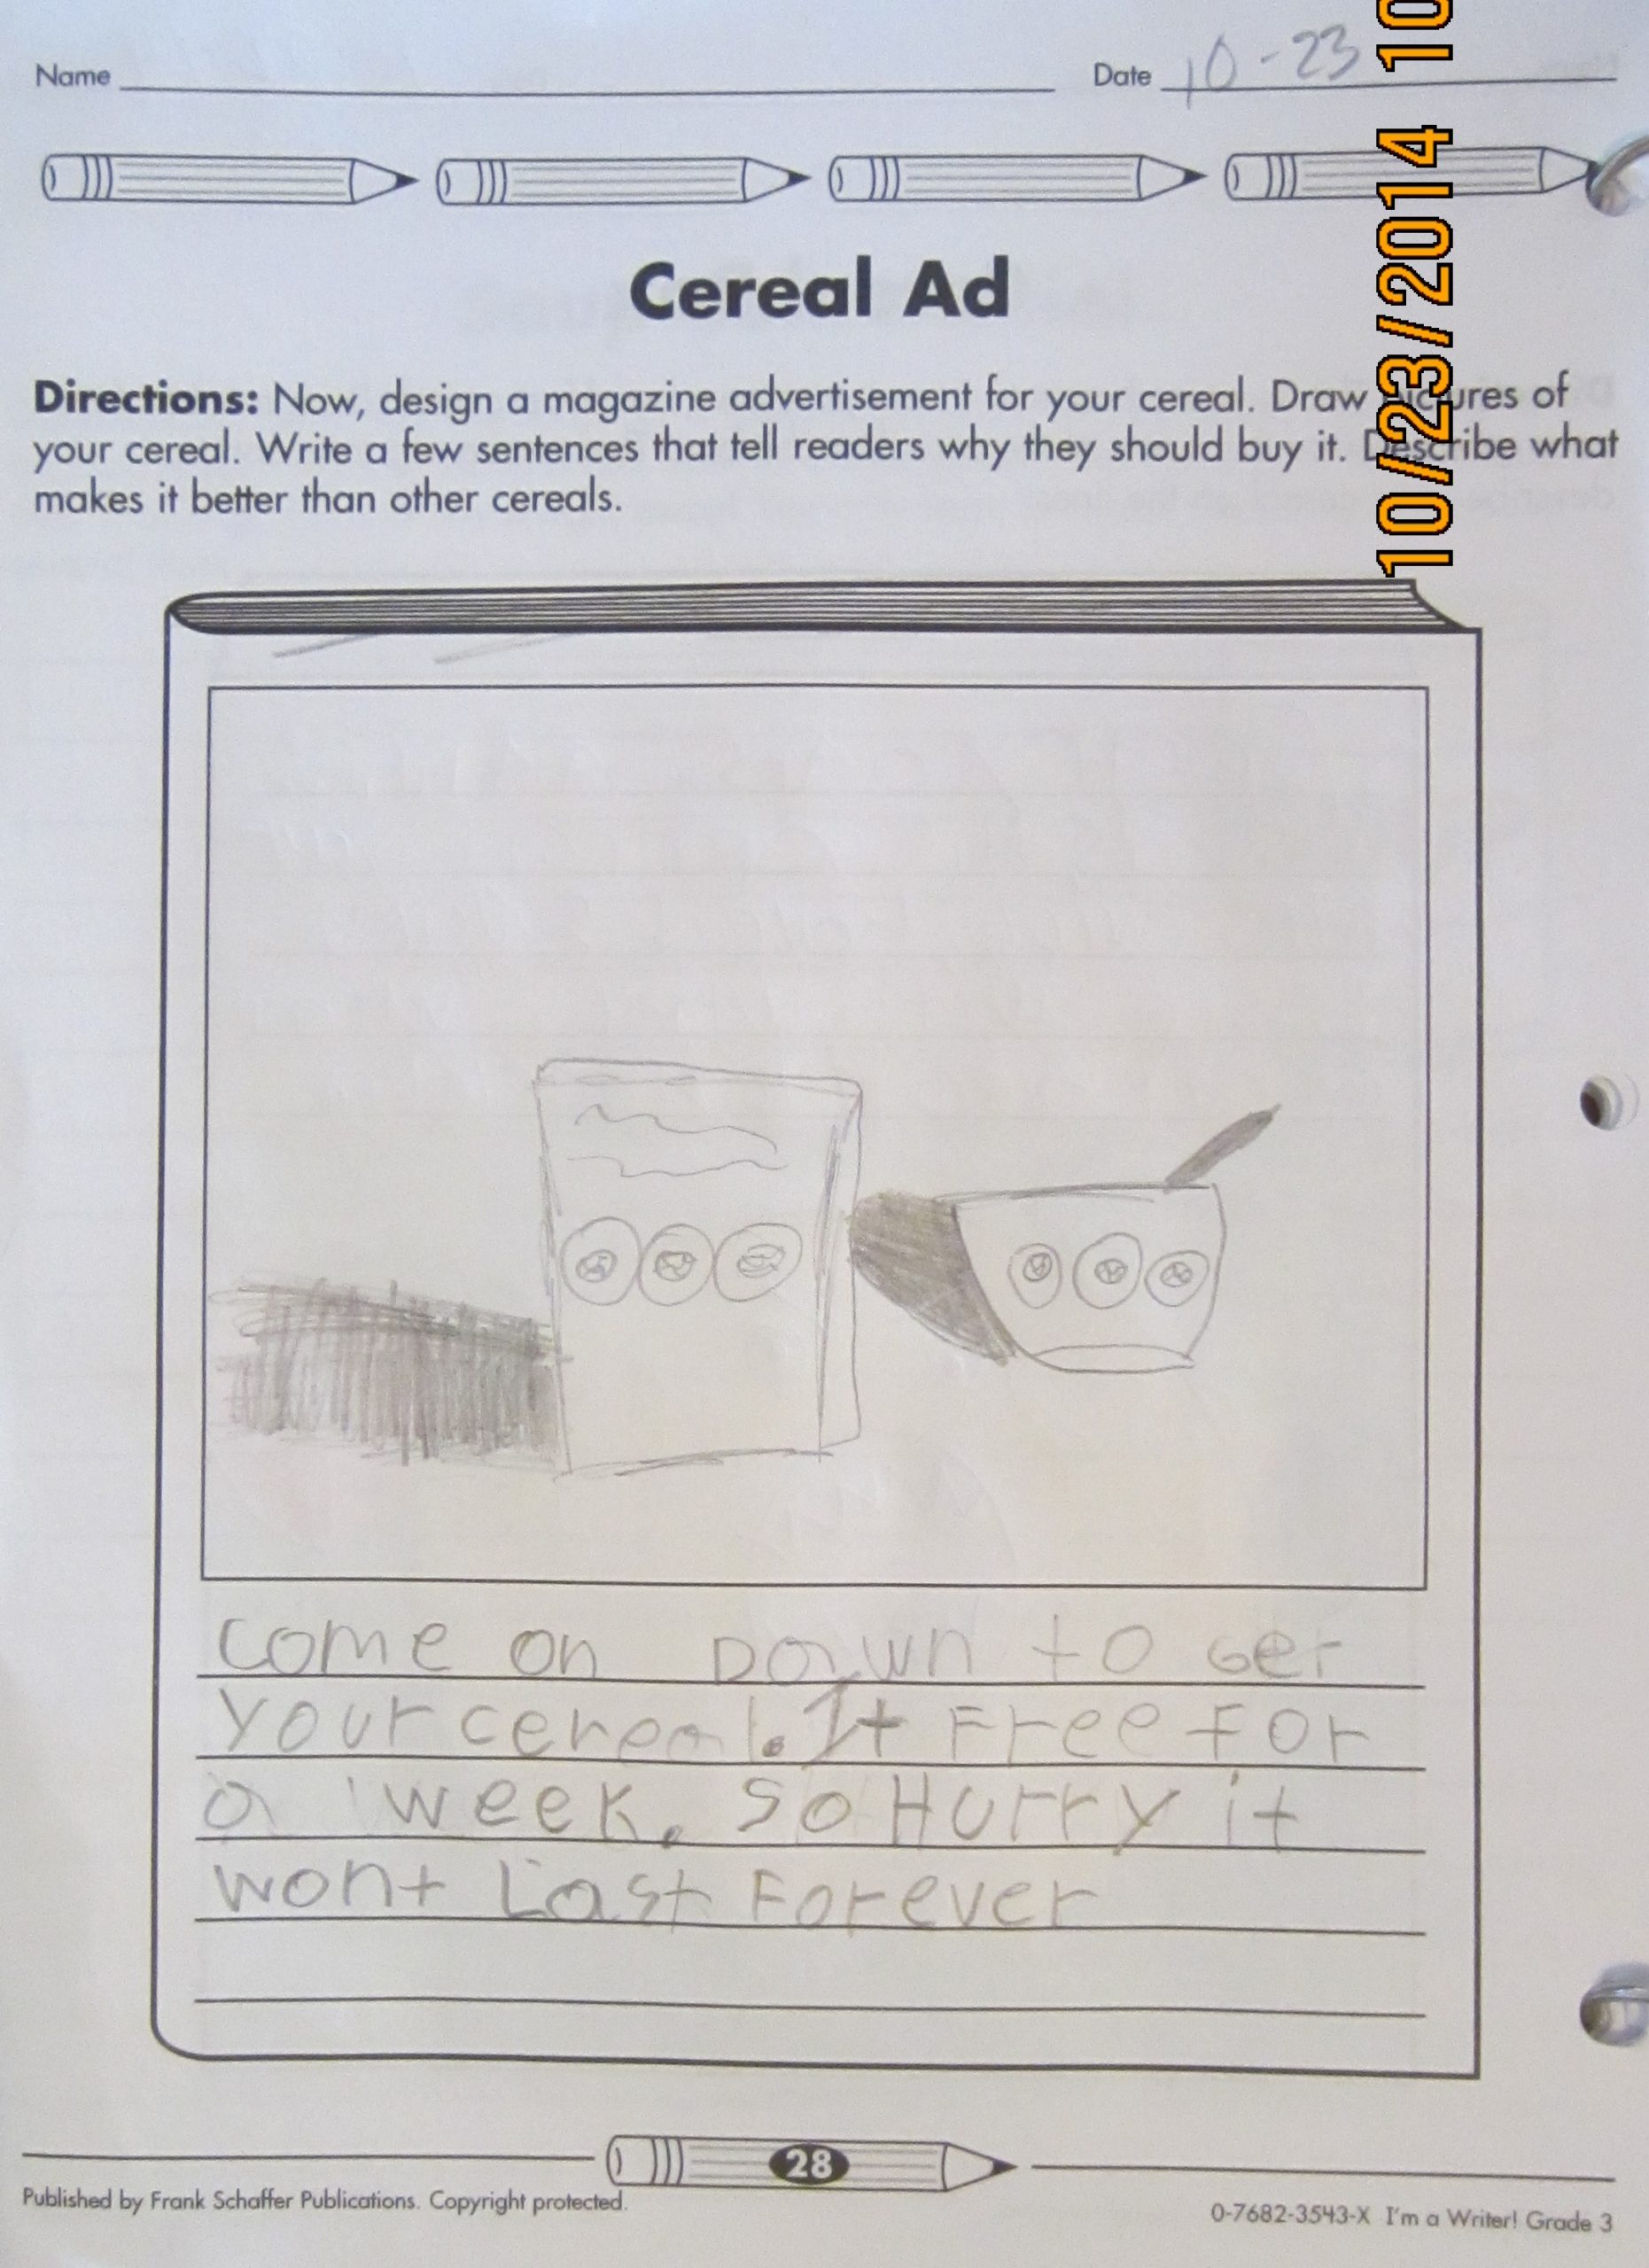 Name Date 10-23
10/23/2014 10
Cereal Ad
Directions: Now, design a magazine advertisement for your cereal. Draw pictures of
your cereal. Write a few sentences that tell readers why they should buy it. Describe what
makes it better than other cereals.
come on Down to Get
your cereal. It Free for
a week. so Hurry it
wont Last Forever
28
Published by Frank Schaffer Publications. Copyright protected.
0-7682-3543-X I'm a Writer! Grade 3